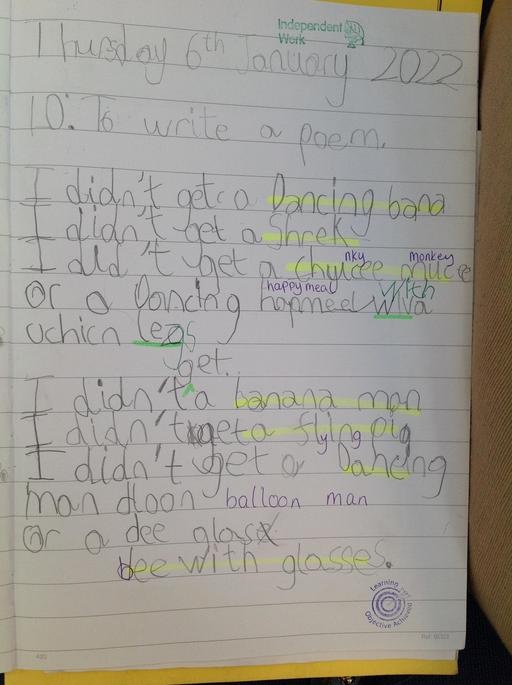 Independent
Work
Thursday 6th January 2022
LO: To write a poem.
I didn't get a Dancing band
I didn't get a Shrek
nky monkey
I did't get a chuicee
happy meal with
or a Dancing hapmeel
uchicn legs
get.
I didn't a banana man
I didn't get a flying pig
I didn't get a Dancing
man dloon balloon man
or a dee glass
bee with glasses.
Learning
Objective Achieved